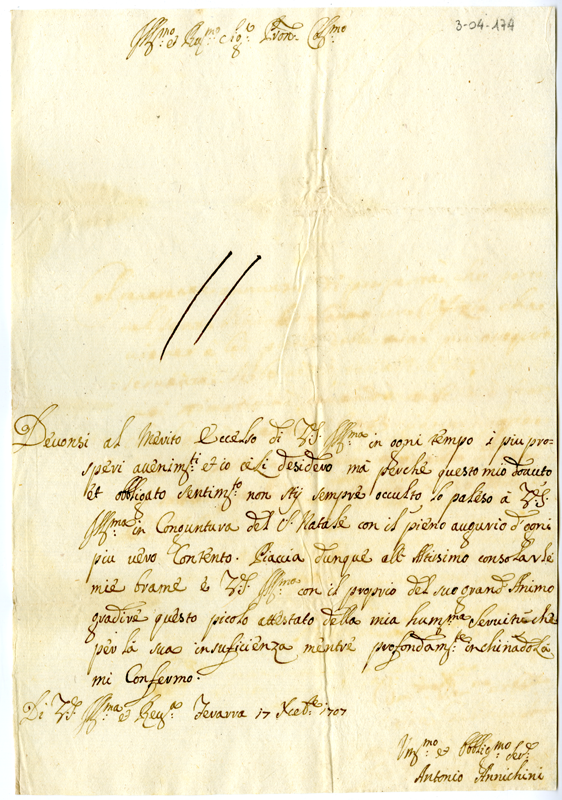 3-04-174
Ill.mo e Reu.mo Sig.r Pron. Col.mo
Deuonsi al Merito Eccelso di V.S. Ill.ma in ogni tempo i piu pro-
speri auenim.ti et io celi desidero ma perche questo mio douuto
et obligato sentim.to non stij sempre occulto lo paleso à V.S.
Ill.ma in Conguntura del S. Natale con il pieno augurio d'ogni
piu vero Contento. Piaccia dunque all'Altissimo consolar le
mie brame e V.S. Ill.ma con il proprio del suo grand'Animo
gradire questo picolo attestato della mia hum.ma Seruitù che
per la sua insuficienza mentre profondam.te inchinādola
mi Confermo.
Di V.S. Ill.ma e Reu.ma 17 Xcēb.e 1707
Um.mo et Oblig.mo Ser.
Antonio Annichini